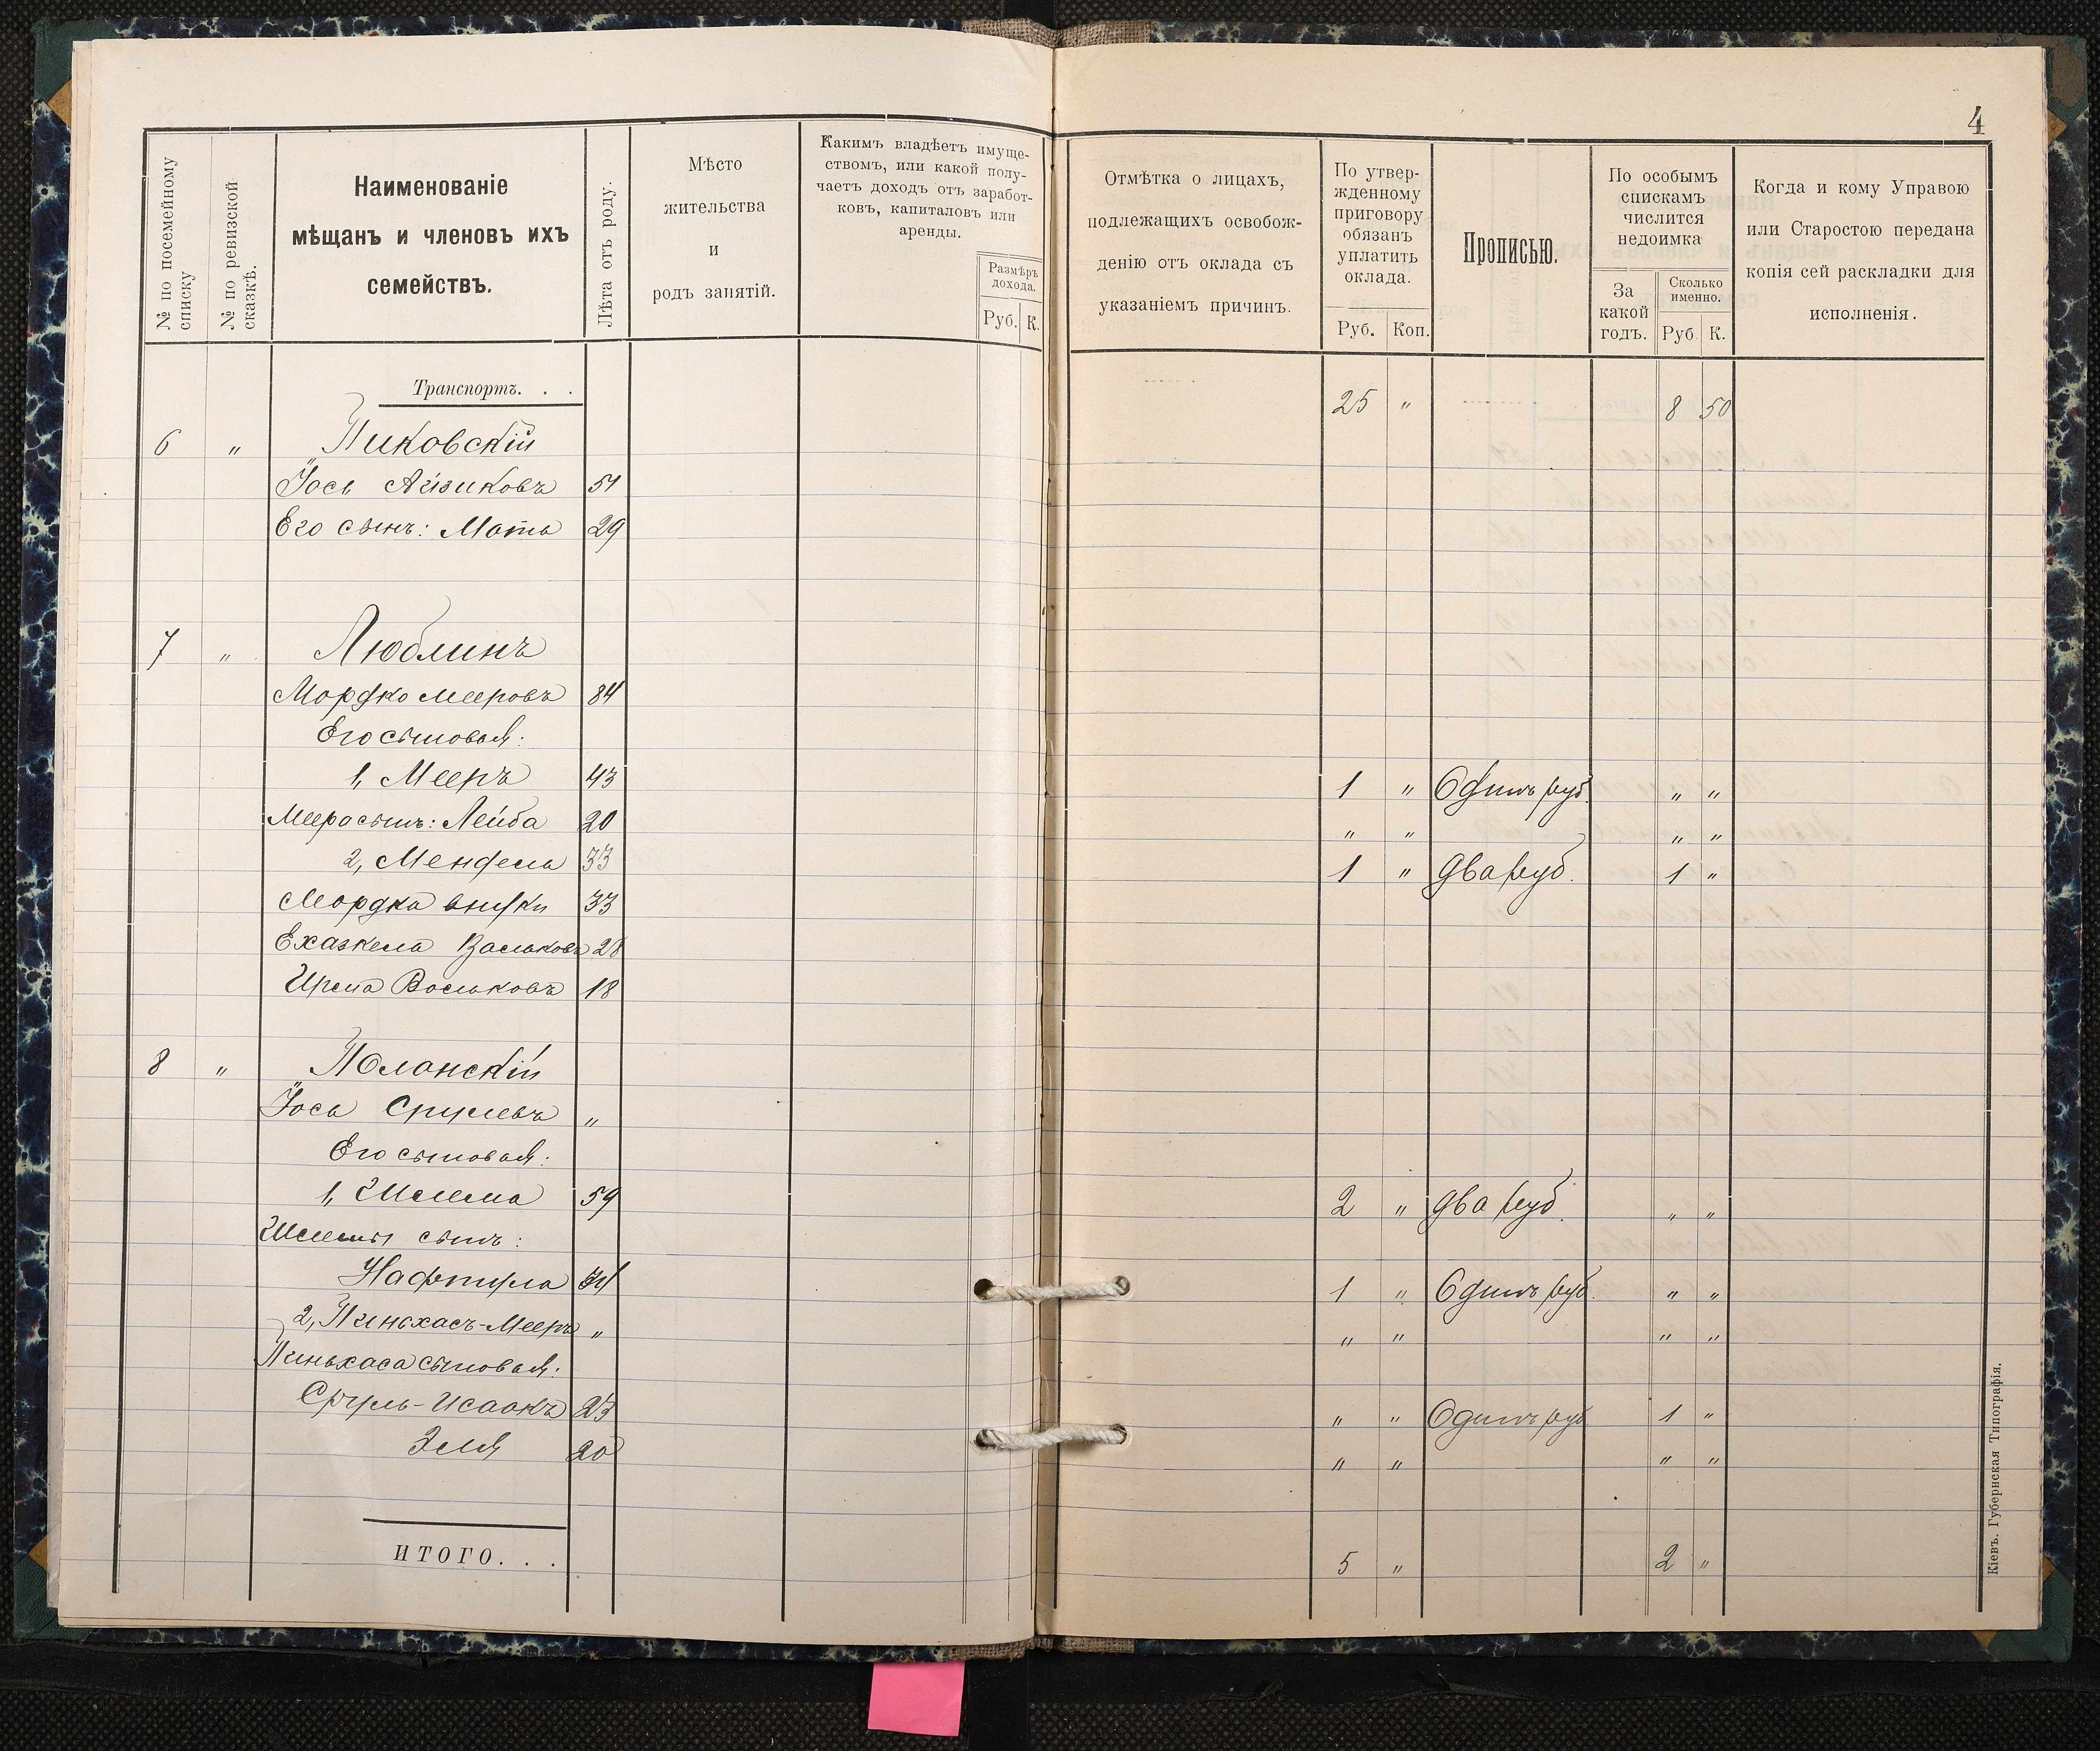 4
№ по посемейному списку
№ по ревизской сказкѣ.
Наименованіе
мѣщанъ и членовъ ихъ
семействъ.
Лѣта отъ роду.
Мѣсто
жительства
и
родъ занятій.
Какимъ владѣетъ имуще-
ствомъ, или какой полу-
чаетъ доходъ отъ заработ-
ковъ, капиталовъ или
аренды.
Размѣръ
дохода.
Руб. К.
Отмѣтка о лицахъ,
подлежащихъ освобож-
денію отъ оклада съ
указаніемъ причинъ.
По утвер-
жденному
приговору
обязанъ
уплатить
оклада.
Руб. Коп.
Прописью.
По особымъ
спискамъ
числится
недоимка
За
какой
годъ.
Сколько
именно.
Руб. К.
Когда и кому Управою
или Старостою передана
копія сей раскладки для
исполненія.
Транспортъ. . . 25 " 8 50
6 " Пиковскій
Іось Айзиковъ 51
Его сынъ: Мота 29
7 " Люблинъ
Мордко Мееровъ 84
Его сыновья:
1, Мееръ 43 1 " Одинъ руб. " "
Меера сынъ: Лейба 20 " " " "
2, Мендель 33 1 " Два руб. 1 "
Мордка внуки 33
Ехазкель Васьковъ 28
Васьковъ 18
8 " Полонскій
Іось Срулевъ "
Его сыновья:
1, Шлема 59 2 " Два руб. " "
Шлемы сынъ:
Нафтула 34 1 " Одинъ руб. " "
2, Пиньхасъ-Мееръ " " " " "
Пиньхаса сыновья:
Сруль-Исаакъ 23 " " Одинъ руб 1 "
Эля 20 " " " "
ИТОГО. . . 5 " 2 "
Кіевъ. Губернская Типографія.